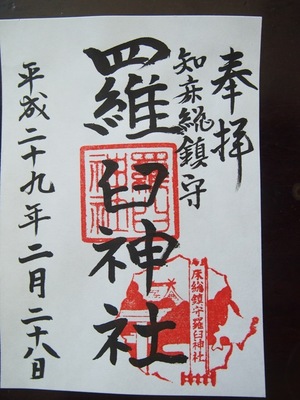 奉拝
知床総鎮守
羅臼神社
平成二十九年二月二十八日
羅臼神社
床総鎮守羅臼神社